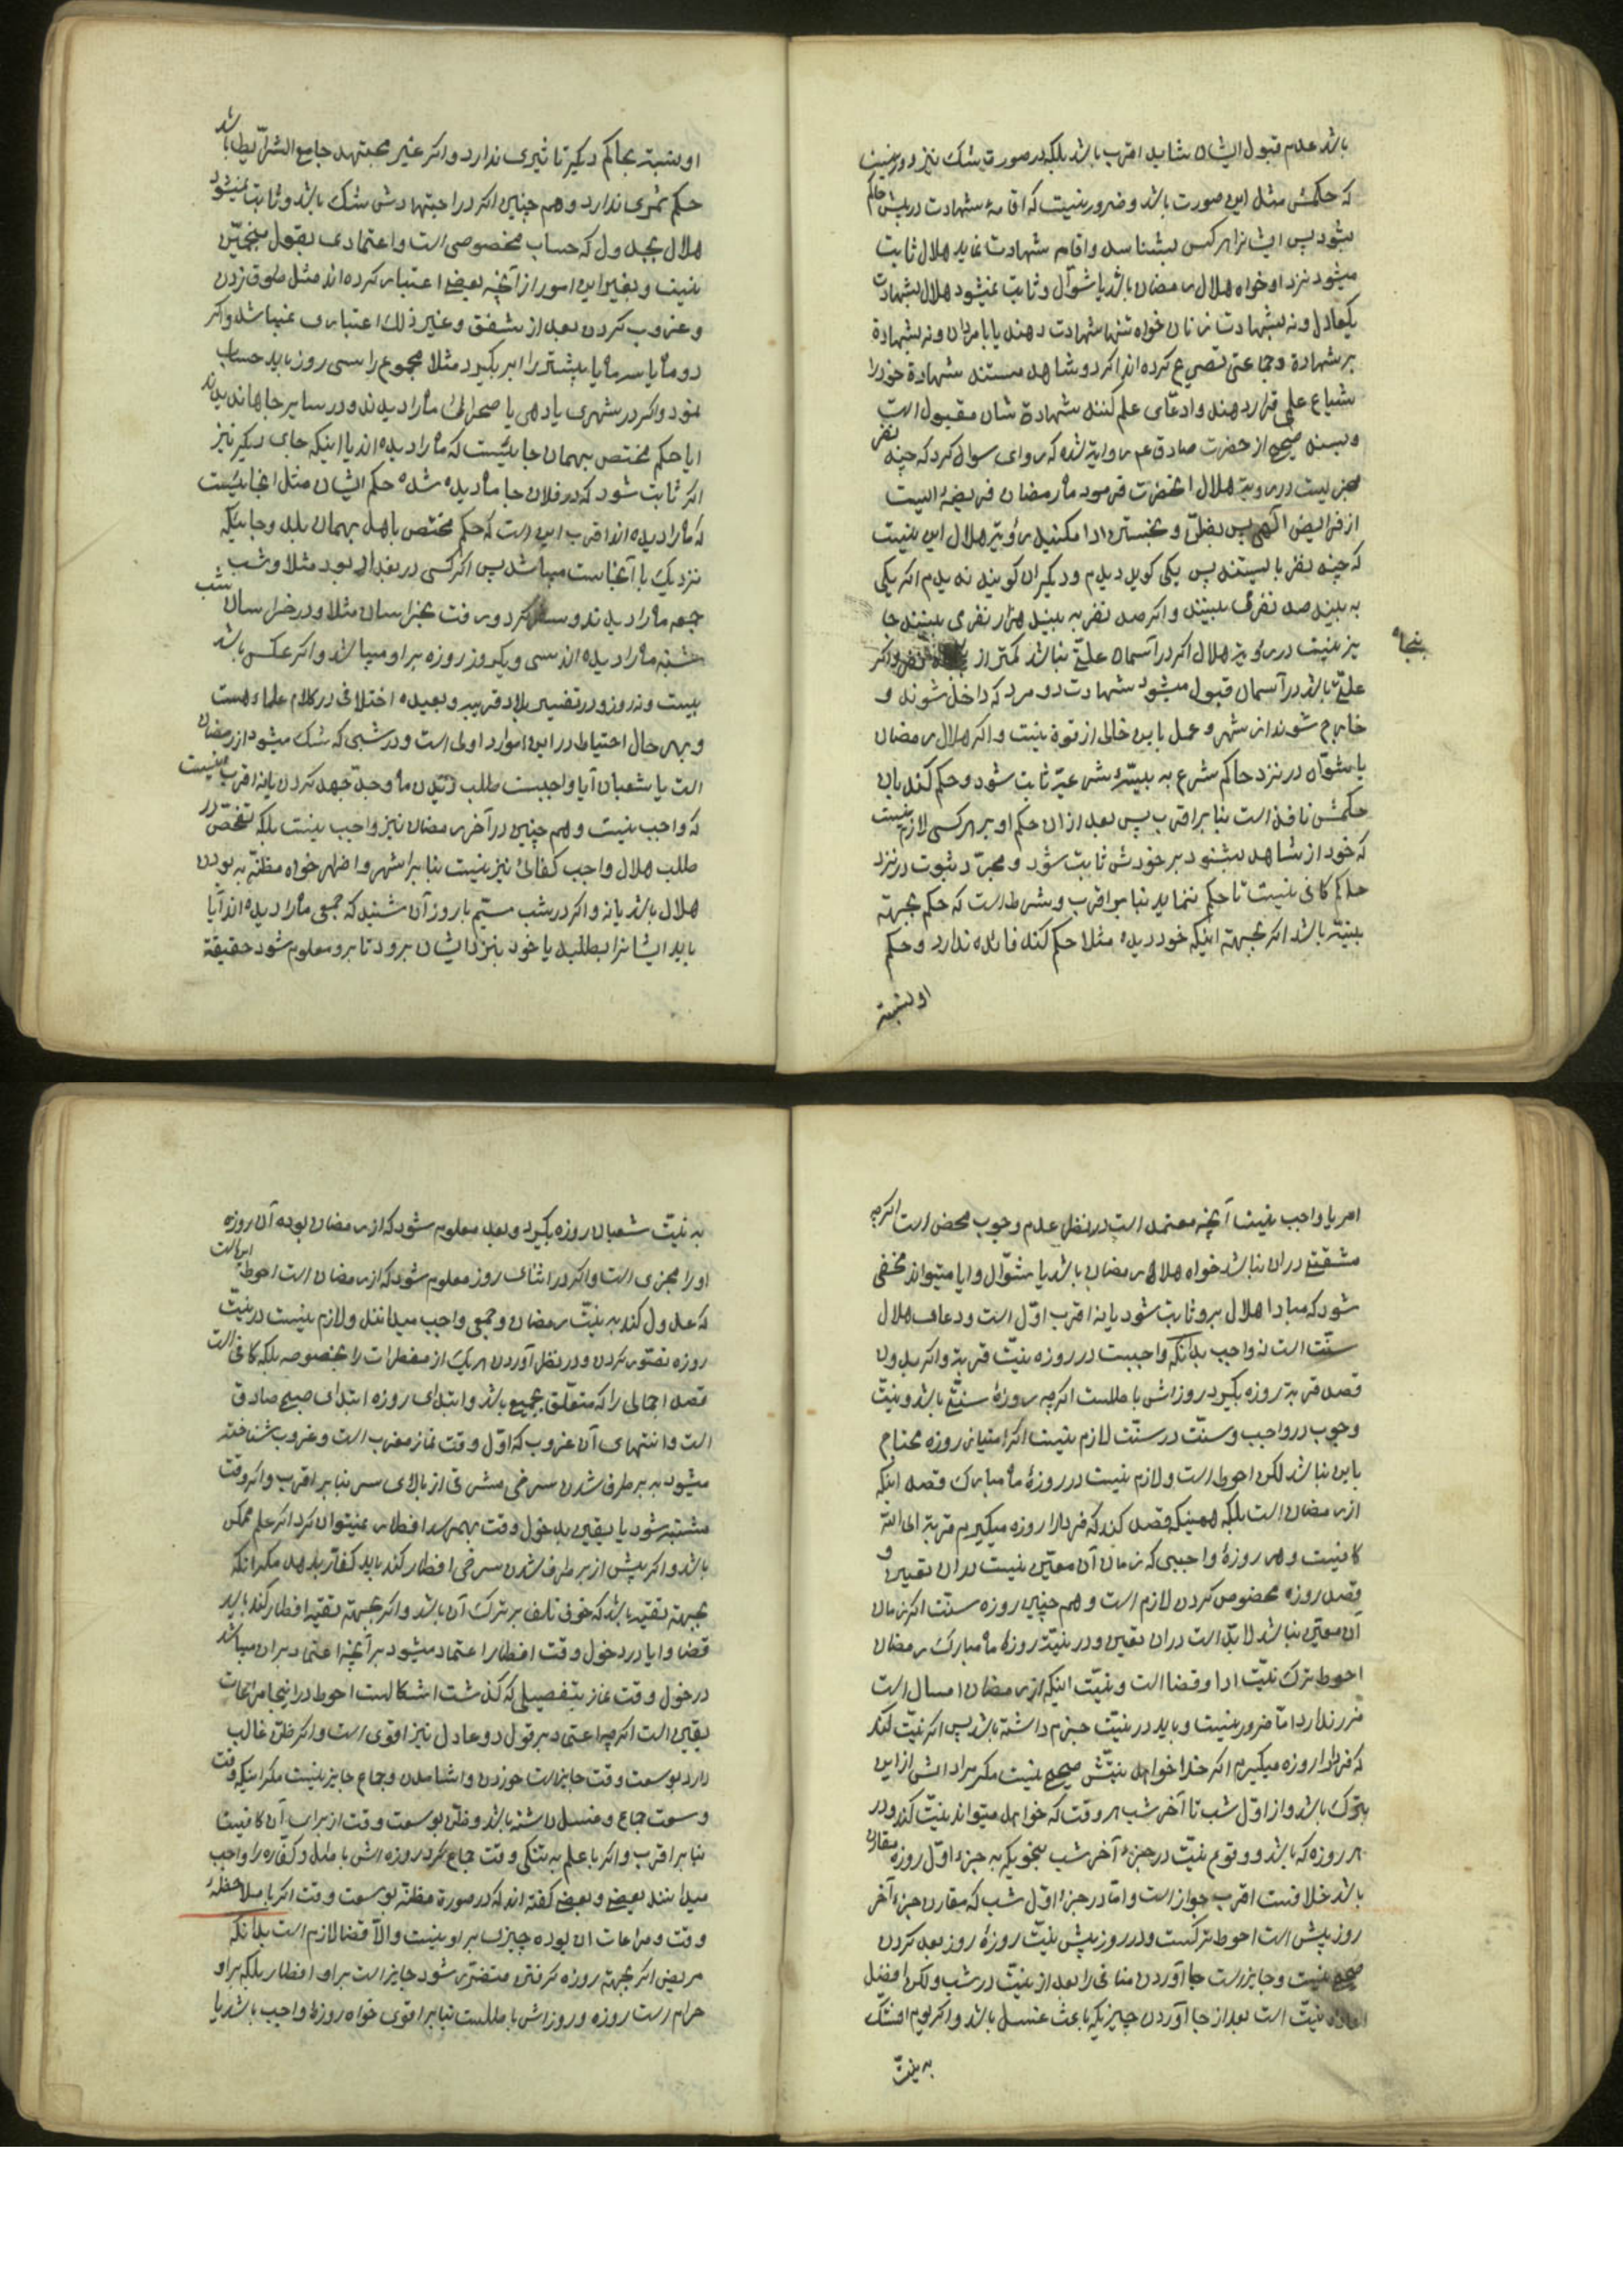 باشد عدم قبول ایشان شاید اقرب باشد بلکه در صورت شک نیز دور نیست
که حکمش مثل این صورت باشد و ضرور نیست که اقامهٔ شهادت در پیش حاکم
بشود پس ایشانرا هر کس بشناسد و اقامه شهادت نماید هلال ثابت
میشود نزد او خواه هلال رمضان باشد یا شوّال و ثابت نمیشود هلال بشهادت
یکعادل و نه بشهادت زنان خواه تنها شهادت دهند یا با مردان و نه بشهادة
بر شهادة و جماعتی تصریح کرده اند اگر دو شاهد مستند شهادة خود را
شیاع علمی قرار دهند و ادعّای علم کنند شهادة شان مقبول است
و بسند صحیح از حضرت صادق عم روایة شده که راوی سوال کرد که چند نفر
مجزیست در رویة هلال انحضرت فرمود ماه رمضان فریضهٔ ایست
از فرایض الهی پس بظنّ و تخمین ادا مکنید رؤیة هلال این نیست
که چند نفر بایستند پس یکی گوید دیدم و دیگران گویند ندیدم اگر یکی
به بیند صد نفری ببینند و اگر صد نفر به بیند هزار نفری ببینند جا
یز نیست در رؤیة هلال اگر در آسمان علّتی نباشد کمتر از نفر و اگر
پنجاه
علّتی باشد در آسمان قبول میشود شهادت دو مرد که داخل شوند و
خارج شوند از شهر و عمل باین خالی از قوة نیست و اگر هلال رمضان
یا شوّال در نزد حاکم شرع به بیّنهٔ شرعیّه ثابت شود و حکم کند بان
حکمش نافذ است بنا بر اقرب پس بعد از ان حکم او بر هر کسی لازم نیست
که خود از شاهد بشنود بر خودش ثابت شود و مجرّد ثبوت در نزد
حاکم کافی نیست تا حکم ننماید بنا بر اقرب و شرط است که حکم بجهة
بیّنه باشد اگر بجهة اینکه خود دیده مثلا حکم کند فائده ندارد و حکم
او نسبة
او نسبة بحاکم دیگر تاثیری ندارد و اگر غیر مجتهد جامع الشرایط باشد
حکم ثمری ندارد و هم چنین اگر در اجتهادش شک باشد و ثابت نمیشود
هلال بجدول که حساب مخصوصی است و اعتمادی بقول منجمّین
نیست و بغیر این امور از آنچه بعضی اعتبار کرده اند مثل طوق زدن
و غروب کردن بعد از شفق و غیر ذلک اعتباری نمیباشد و اگر
دو ماه یا سه ماه یا بیشتر را ابر بگیرد مثلا مجموع را سی روز باید حساب
نمود و اگر در شهری یا دهی یا صحرائی ماه را دیدند و در سایر جاها ندیدند
ایا حکم مختص بهمان جائیست که ماه را دیده اند یا اینکه جای دیگر نیز
اگر ثابت شود که در فلان جا ماه دیده شده حکم ایشان مثل انجائیست
که ماه را دیده اند اقرب این است که حکم مختص باهل بهمان بلد و جائیکه
نزدیک با آنجاست میباشد پس اگر کسی در بغداد بود مثلا و شب
جمعه ماه را دیدند و سفر کرد و رفت بخراسان مثلا و در خراسان شب
شنبه ماه را دیده اند سی و یکروز روزه بر او میباشد و اگر عکس باشد
بیست و نه روز و در تفسیر بلاد قریبه و بعیده اختلافی در کلام علماء هست
و بهر حال احتیاط در این موارد اولی است و در شبی که شک میشود از رمضان
است یا شعبان آیا واجبست طلب دیدن ماه و جدّ جهد کردن یا نه اقرب اینست
که واجب نیست و هم چنین در آخر رمضان نیز واجب نیست بلکه تفحّص در
طلب هلال واجب کفائی نیز نیست بنا بر اشهر و اظهر خواه مظنّه به بودن
هلال باشد یا نه و اگر در شب سیّم یا روز آن شنید که جمعی ماه را دیده اند آیا
باید ایشانرا بطلبد یا خود بنزد ایشان برود تا بر او معلوم شود حقیقة
امر یا واجب نیست آنچه معتمد است در نظر عدم وجوب محض است اگرچه
مشقتّی در ان نباشد خواه هلال رمضان باشد یا شوّال و ایا میتواند مخفی
شود که مبادا هلال بر او ثابت شود یا نه اقرب اوّل است و دعای هلال
سنّت است نه واجب بدانکه واجبست در روزه نیّت قربة و اگر بدون
قصد قربة روزه بگیرد روزه اش باطلست اگرچه روزهٔ سنتّی باشد و نیّت
وجوب در واجب و سنّت در سنّت لازم نیست اگر امتیاز روزه محتاج
باین نباشد لکن احوط است و لازم نیست در روزهٔ ماه مبارک قصد اینکه
از رمضان است بلکه همینکه قصد کند که فردا را روزه میگیرم قربة الی الله
کافیست و هر روزهٔ واجبی که زمان آن معیّن نیست در ان تعیین و
قصد روزه مخصوص کردن لازم است و هم چنین روزه سنت اگر زمان
آن معیّن نباشد لابدّ است در ان تعیین و در نیّت روزهٔ ماه مبارک رمضان
احوط ترک نیّت ادا و قضا است و نیّت اینکه از رمضان امسال است
ضرر ندارد امّا ضرور نیست و باید در نیّت جزم داشته باشد پس اگر نیّت کند
که فردا روزه میگیرم اگر خدا خواهد نیّتش صحیح نیست مگر مرادش از این
تبرّک باشد و از اوّل شب تا آخر شب هر وقت که خواهد میتواند نیّت کند و در
هر روزه که باشد و وقوع نیّت در جزء آخر شب بنحویکه به جزء اوّل روزه مقارن
باشد خلافست اقرب جواز است و امّا در جزء اوّل شب که مقارن جزء آخر
روز پیش است احوط ترکست و در روز پیش نیّت روزهٔ روز بعد کردن
صحیح نیست و جایز است جا آوردن منافی را بعد از نیّت در شب و لکن افضل
نیّت است بعد از جا آوردن چیزیکه باعث غسل باشد و اگر یوم الشّک
به نیّت
به نیّت شعبان روزه بگیرد و بعد معلوم شود که از رمضان بوده آن روزه
او را مجزی است و اگر در اثنای روز معلوم شود که از رمضان است احوط این است
که عدول کند به نیّت رمضان و جمعی واجب میدانند و لازم نیست در نیّت
روزه تصوّر کردن و در نظر آوردن هر یک از مفطرات را بخصوصه بلکه کافی است
قصد اجمالی را که متعلّق بجمیع باشد و ابتدای روزه ابتدای صبح صادق
است و انتهای آن غروب که اوّل وقت نماز مغرب است و غروب شناخته
میشود به بر طرف شدن سرخی مشرقی از بالای سر بنا بر اقرب و اگر وقت
مشتبه شود یا یقین بدخول وقت بهم رسد افطار نمیتوان کرد اگر علم ممکن
باشد و اگر پیش از بر طرف شدن سرخی افطار کند باید کفاره بدهد مگر انکه
بجهة تقیّه باشد که خوف تلف بر ترک آن باشد و اگر بجهة تقیّه افطار کند باید
قضا و ایا در دخول وقت افطار اعتماد میشود بر آنچه اعتماد بر ان میباشد
در دخول وقت نماز بتفصیلی که گذشت اشکالست احوط در اینجا مراعات
یقین است اگرچه اعتماد بر قول دو عادل نیز اقوی است و اگر ظنّ غالب
دارد بوسعت وقت جایز است خوردن و اشامیدن و جماع جایز نیست مگر اینکه وقت
وسعت جماع و غسل داشته باشد و ظنّ بوسعت وقت از برای آن کافیست
بنا بر اقرب و اگر با علم به تنگی وقت جماع کرد روزه اش باطل و کفاره را واجب
میدانند بعضی و بعضی گفته اند که در صورة مظنّه بوسعت وقت اگر با ملاحظهٔ
وقت و مراعات ان بوده چیزی بر او نیست و الّا قضا لازم است بدانکه
مریض اگر بجهة روزه گرفتن متضرّر شود جایز است بر او افطار بلکه بر او
حرام است روزه و روزه اش باطلست بنا بر اقوی خواه روزهٔ واجب باشد یا